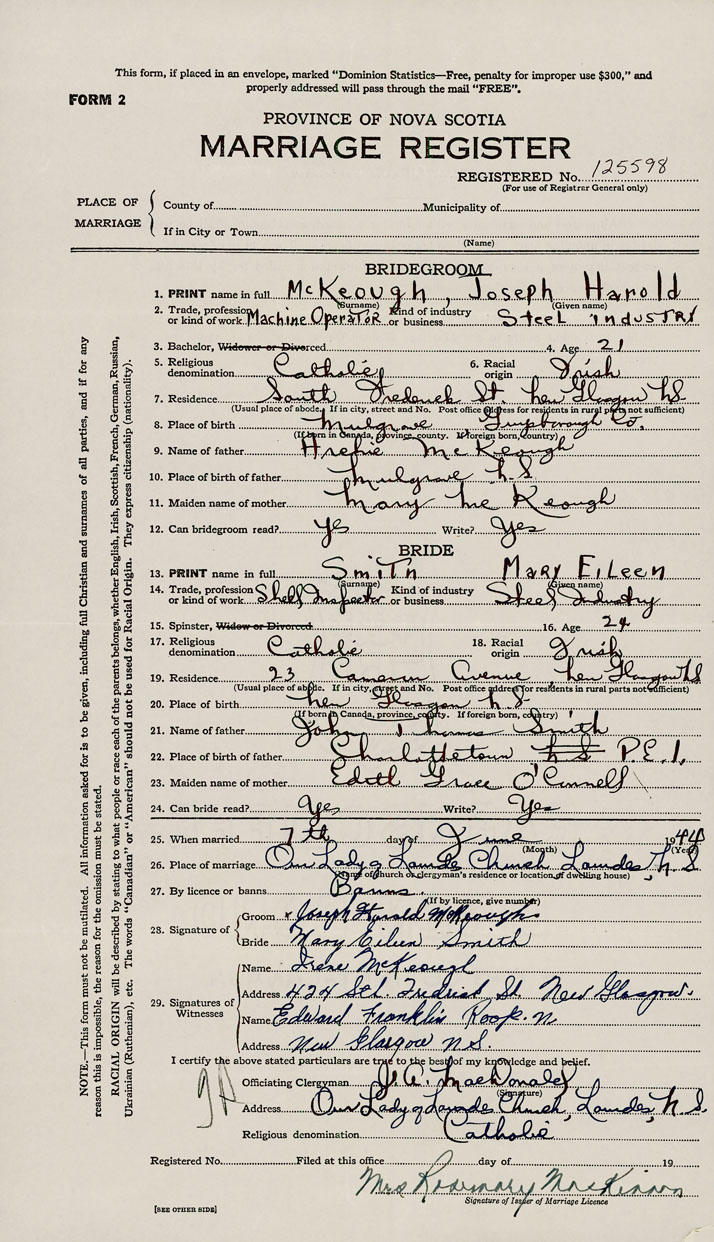 This form, if placed in an envelope, marked "Dominion Statistics—Free, penalty for improper use $300," and
properly addressed will pass through the mail "FREE".
FORM 2
PROVINCE OF NOVA SCOTIA
MARRIAGE REGISTER
REGISTERED No. 125598
(For use of Registrar General only)
PLACE OF MARRIAGE
County of Municipality of
If in City or Town
(Name)
BRIDEGROOM
1. PRINT name in full McKeough, Joseph Harold
(Surname) (Given name)
2. Trade, profession or kind of work Machine Operator Kind of industry or business Steel Industry
3. Bachelor, Widower or Divorced 4. Age 21
5. Religious denomination Catholic 6. Racial origin Irish
7. Residence South Frederick St. New Glasgow N S
(Usual place of abode. If in city, street and No. Post office address for residents in rural parts not sufficient)
8. Place of birth Mulgrave Guysborough Co.
(If born in Canada, province, county. If foreign born, country)
9. Name of father Archie McKeough
10. Place of birth of father Mulgrave N.S.
11. Maiden name of mother Mary McKeough
12. Can bridegroom read? Yes Write? Yes
BRIDE
13. PRINT name in full Smith Mary Eileen
(Surname) (Given name)
14. Trade, profession or kind of work Shell Inspector Kind of industry or business Steel Industry
15. Spinster, Widow or Divorced 16. Age 24
17. Religious denomination Catholic 18. Racial origin Irish
19. Residence 23 Cameron Avenue, New Glasgow N S
(Usual place of abode. If in city, street and No. Post office address for residents in rural parts not sufficient)
20. Place of birth New Glasgow N.S.
(If born in Canada, province, county. If foreign born, country)
21. Name of father John Thomas Smith
22. Place of birth of father Charlottetown N S P.E.I.
23. Maiden name of mother Edith Grace O'Connell
24. Can bride read? Yes Write? Yes
25. When married 7th day of June 1944
(Month) (Year)
26. Place of marriage Our Lady of Lourdes Church Lourdes, N.S
(Name of church or clergyman's residence or location of dwelling house)
27. By licence or banns Banns.
(If by licence, give number)
28. Signature of
Groom x Joseph Harold McKeough
Bride Mary Eileen Smith
29. Signatures of Witnesses
Name Irene McKeough
Address 424 Sth. Fredrick St. New Glasgow.
Name Edward Franklin
Address New Glasgow N.S.
I certify the above stated particulars are true to the best of my knowledge and belief.
Officiating Clergyman J. A. MacDonald
(Signature)
Address Our Lady of Lourdes Church, Lourdes, N.S.
Religious denomination Catholic
Registered No. Filed at this office day of 19
Mrs Rosemary MacKinnon
Signature of Issuer of Marriage Licence
[SEE OTHER SIDE]
NOTE.—This form must not be mutilated. All information asked for is to be given, including full Christian and surnames of all parties, and if for any
reason this is impossible, the reason for the omission must be stated.
RACIAL ORIGIN will be described by stating to what people or race each of the parents belongs, whether English, Irish, Scottish, French, German, Russian,
Ukrainian (Ruthenian), etc. The words "Canadian" or "American" should not be used for Racial Origin. They express citizenship (nationality).